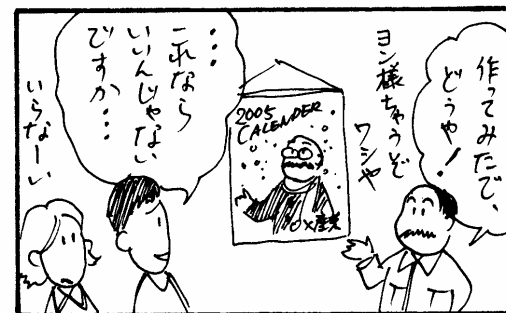 作ってみたで、
どうや!
ヨン様ちゃうぞ
ワシや
2005
CALENDER
○×産業
・・・
これなら
いいんじゃない
ですか・・・
いらなーい